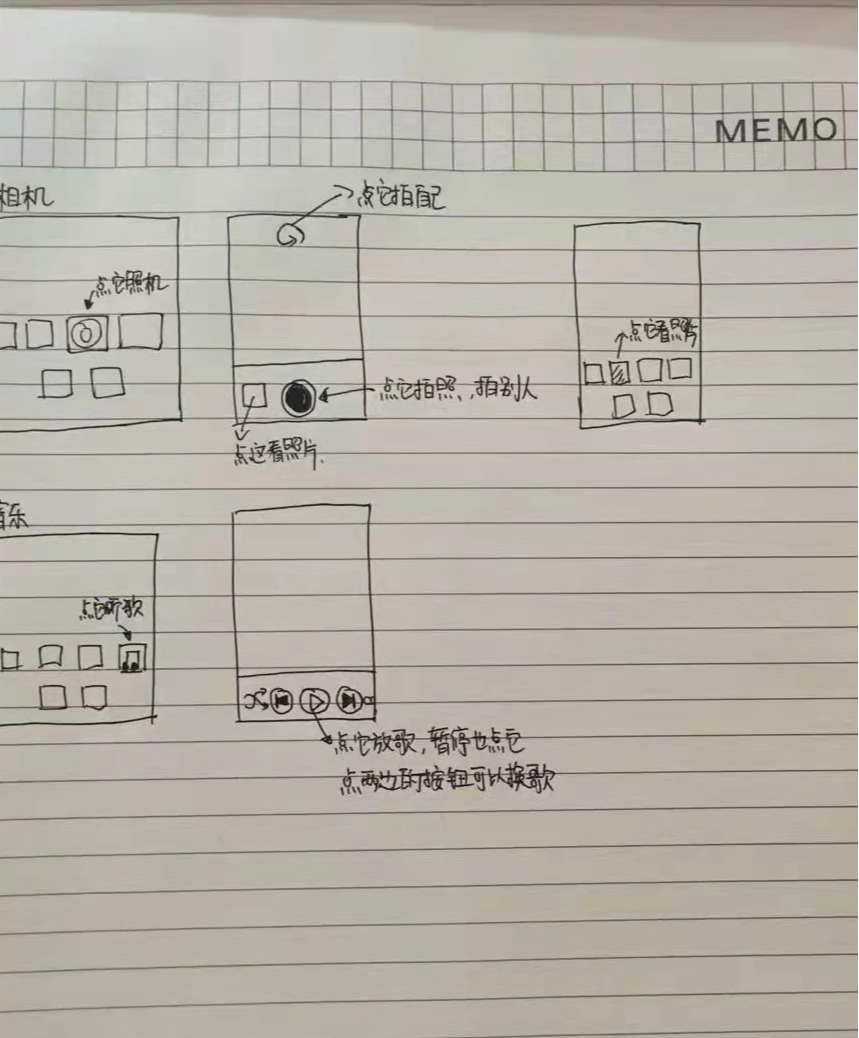 MEMO
相机
点它拍自己
点它照机
点它看照片
点它拍照、拍别人
点这看照片.
音乐
点它听歌
点它放歌,暂停也点它
点两边的按钮可以换歌